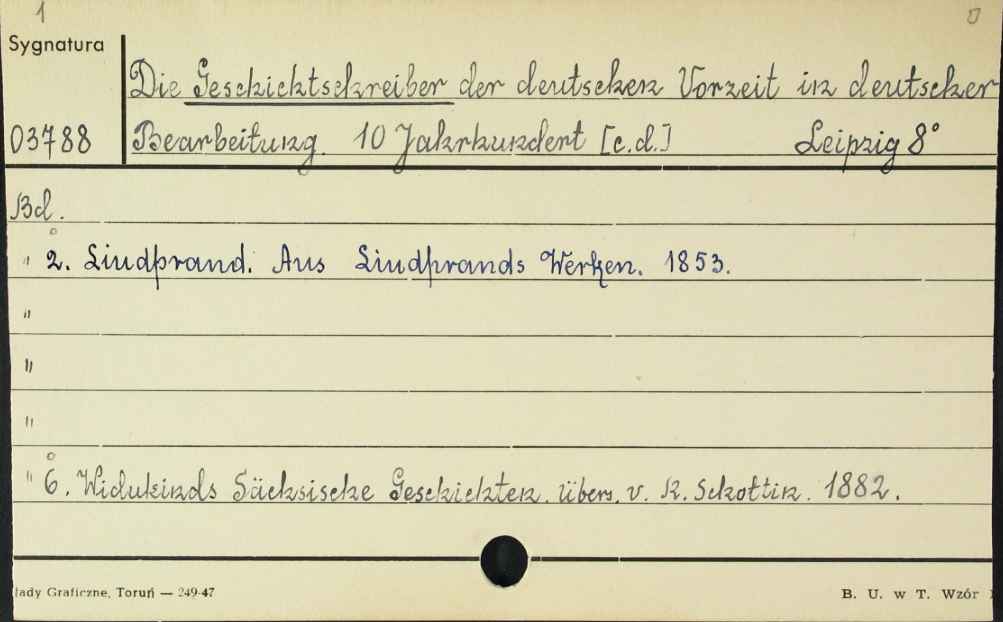 1
Sygnatura
Die Geschichtschreiber der deutschen Vorzeit in deutscher
03788 Bearbeitung. 10 Jahrhundert [c.d.] Leipzig 8°
Bd.
" 2. Liudprand. Aus Liudprands Werken. 1853.
"
"
"
" 6. Widukinds Sächsische Geschichten. übers. v. R. Schottin. 1882.
łady Graficzne, Toruń — 249-47 B. U. w T. Wzór